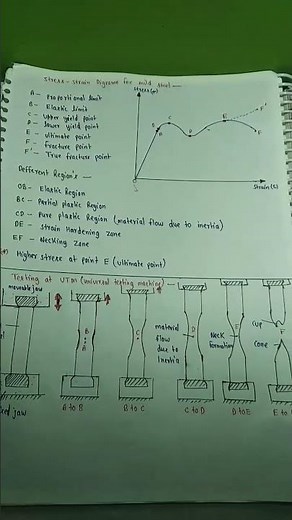 Stress-strain Digrame for mild steel -
A - Proportional limit
B - Elastic limit
C - upper yield point
D - lower yield point
E - ultimate point
F - fracture point
F' - True fracture point
Stress(σ)
A
B
C
D
E
F
F'
O
Strain(ε)
Different Region's -
OB - Elastic Region
BC - Partial plastic Region
CD - Pure plastic Region (material flow due to inertia)
DE - Strain Hardening Zone
EF - Necking Zone
Higher stress at point E (ultimate point)
Testing at UTM (universal testing machine) -
movable jaw
B
A
C
D
E
F
material
flow
due to
inertia
Neck
formation
cup
cone
jaw
A to B
B to C
C to D
D to E
E to